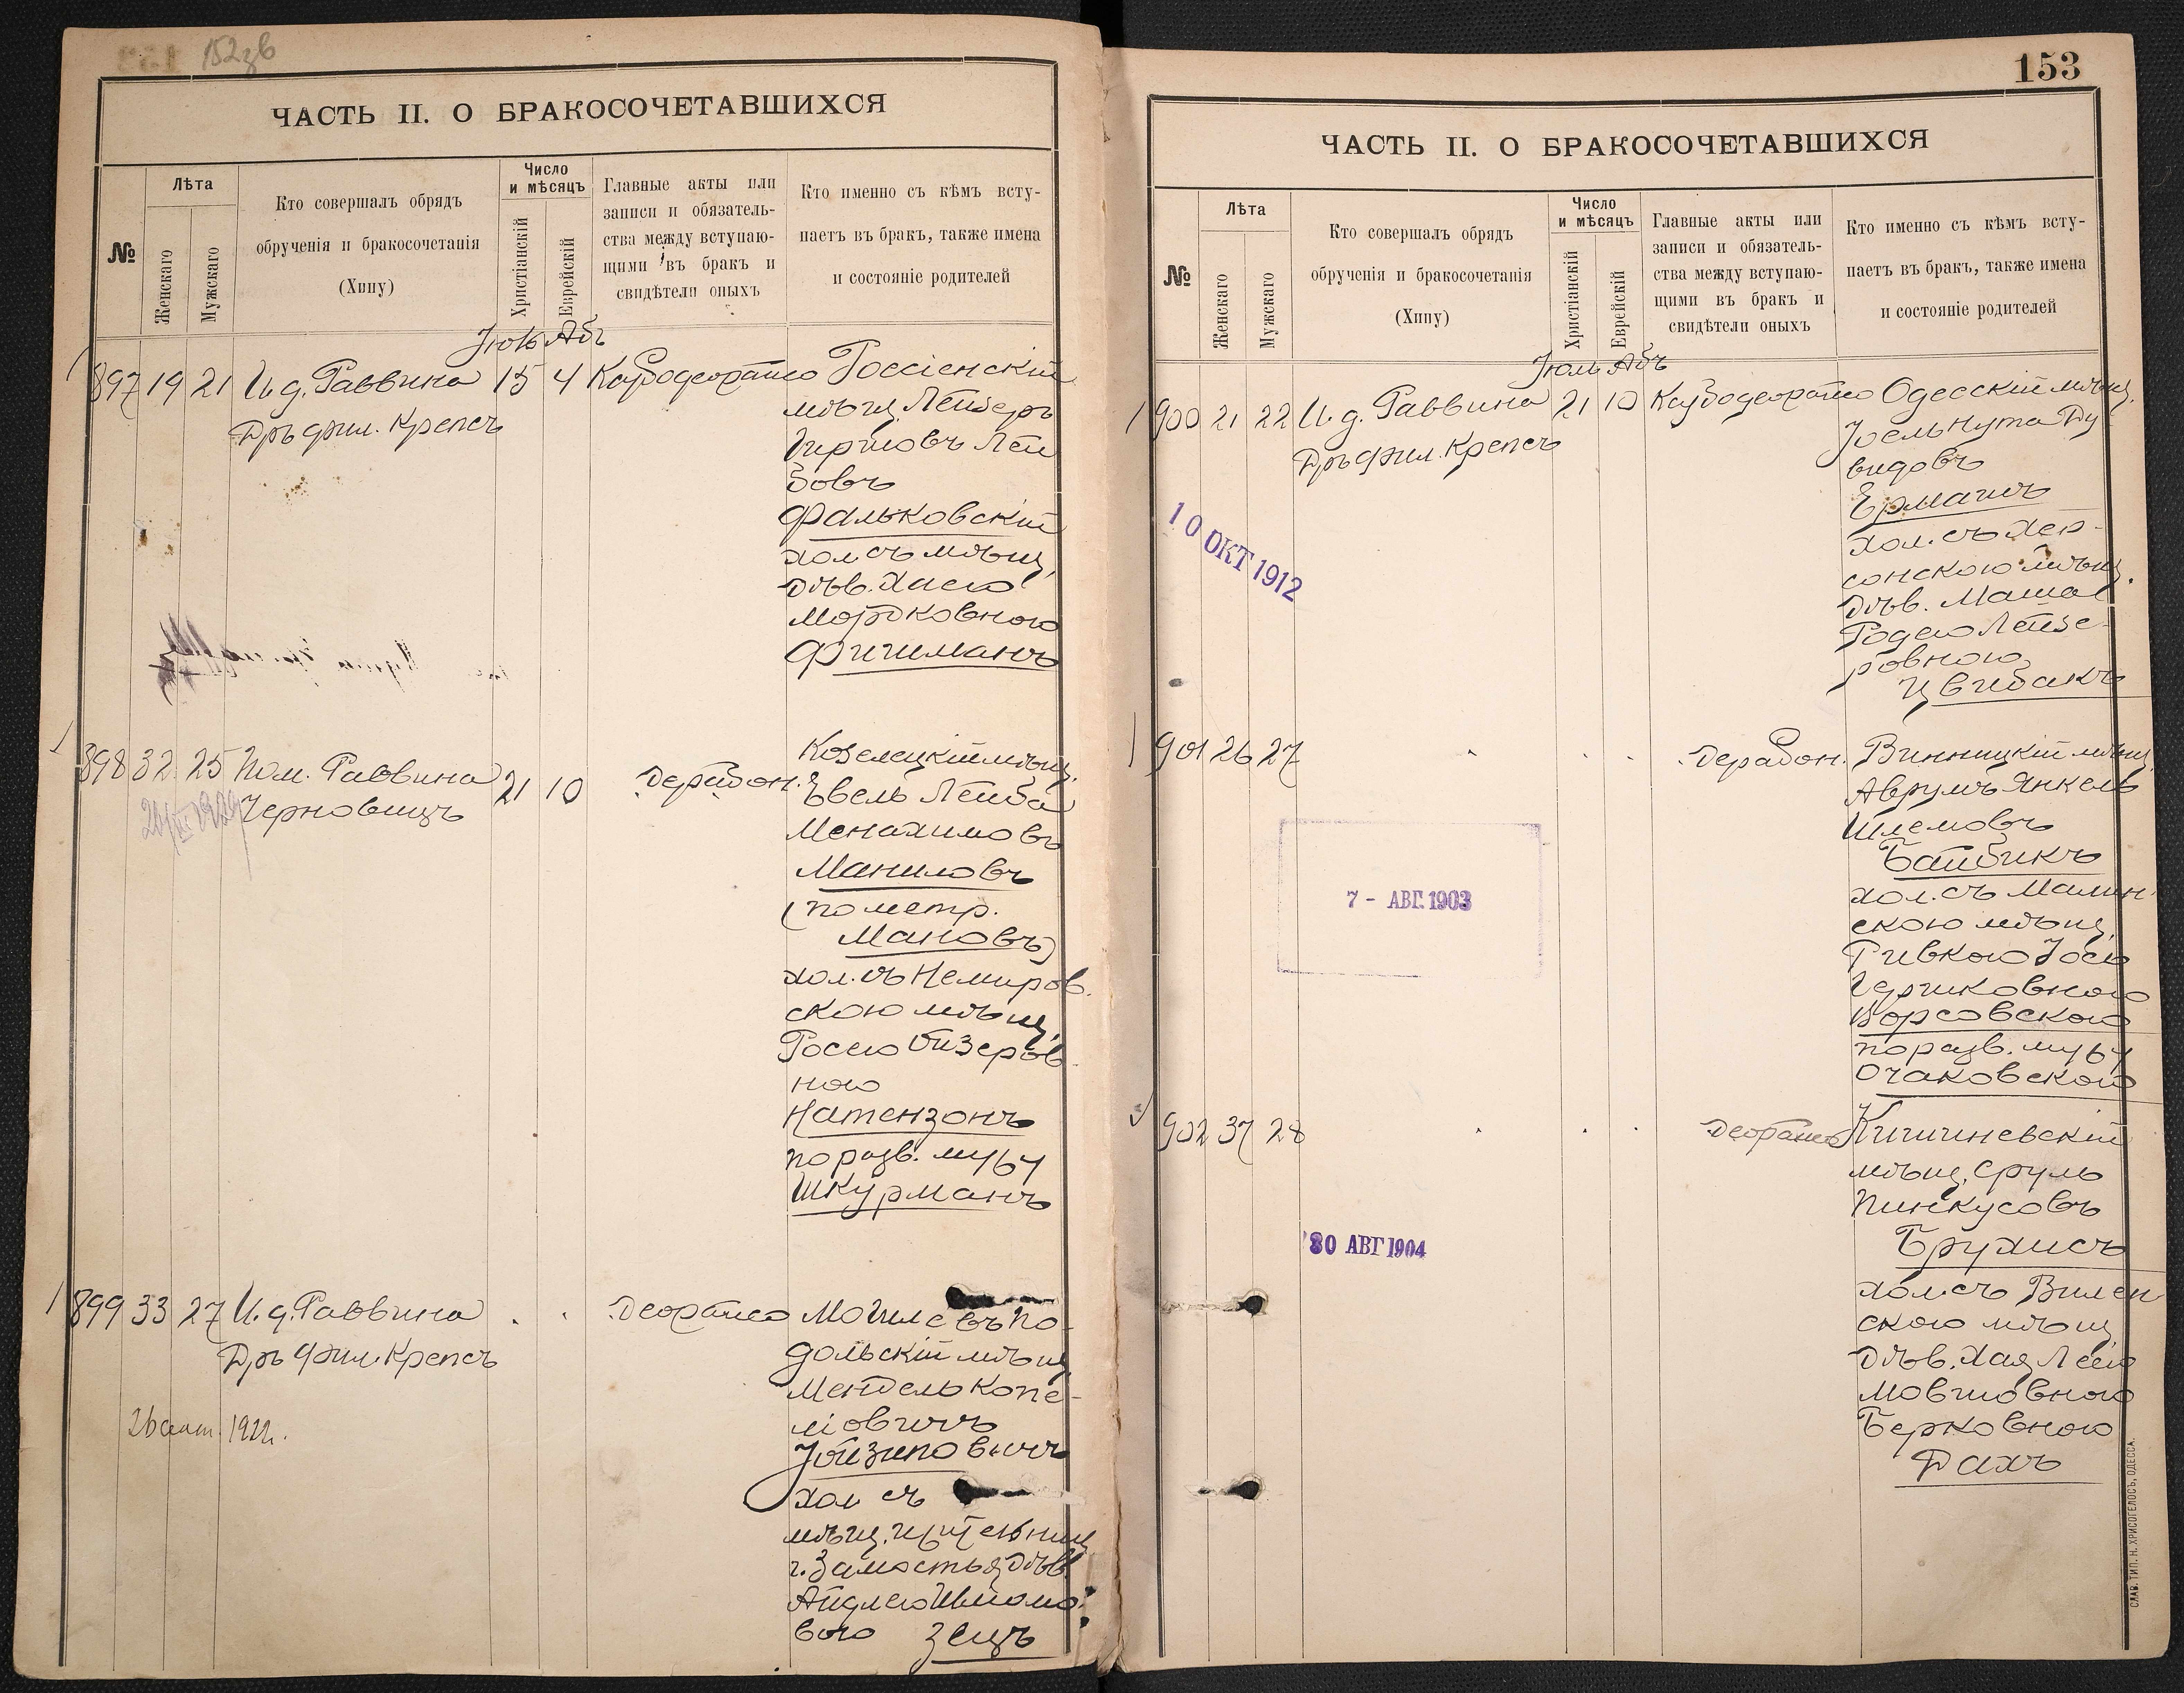 152 зв
ЧАСТЬ II. О БРАКОСОЧЕТАВШИХСЯ
№
Лѣта
Женскаго
Мужскаго
Кто совершалъ обрядъ
обрученія и бракосочетанія
(Хипу)
Число
и мѣсяцъ
Христіанскій
Еврейскій
Главные акты или
записи и обязатель-
ства между вступаю-
щими въ бракъ и
свидѣтели оныхъ
Кто именно съ кѣмъ всту-
паетъ въ бракъ, также имена
и состояніе родителей
Іюль Абъ
897 19 21 И. д. Раввина 15 4 Россіенскій
Д-ръ фил. Крепсъ
мѣщ. Лейзеръ
Гиршовъ Лей
бовъ
Фальковскій
хол. съ мѣщ.
дѣв. Хаею
Мордковною
Фишманъ
898 32 25 Пом. Раввина 21 10
Черновицъ
Козелецкій мѣщ.
Евель Лейба
Менахимовъ
Маниловъ
(по метр.
Мановъ)
хол. съ Немиров.
скою мѣщ.
Росею Ойзеров
ною
Натензонъ
по разв. мужу
Шкурманъ
899 33 27 И. д. Раввина
Д-ръ фил. Крепсъ
26 1922 г.
Могилевъ По-
дольскій мѣщ.
Мендель Копе-
ліовичъ
Іойзиповичъ
хол. съ
мѣщ.
г. Замостья дѣв.
Айдлею Шліомо-
вою Зецъ
153
ЧАСТЬ II. О БРАКОСОЧЕТАВШИХСЯ
№
Лѣта
Женскаго
Мужскаго
Кто совершалъ обрядъ
обрученія и бракосочетанія
(Хипу)
Число
и мѣсяцъ
Христіанскій
Еврейскій
Главные акты или
записи и обязатель-
ства между вступаю-
щими въ бракъ и
свидѣтели оныхъ
Кто именно съ кѣмъ всту-
паетъ въ бракъ, также имена
и состояніе родителей
Іюль Абъ
900 21 22 И. д. Раввина 21 10 Одесскій мѣщ.
Д-ръ фил. Крепсъ
10 ОКТ 1912
Іоель Нута Ду
видовъ
Ермашъ
хол. съ Хер-
сонскою мѣщ.
дѣв. Машею
Родею Лейзе-
ровною
Цвибакъ
901 26 27
7 - АВГ. 1903
Винницкій мѣщ.
Аврумъ Янкель
Шлемовъ
Байбикъ
хол. съ Малин-
скою мѣщ.
Ривкою Іось
Гершковною
Борсовскою
по разв. мужу
Очаковскою
902 37 28
30 АВГ 1904
Кишиневскій
мѣщ. Сруль
Пинкусовъ
Брухисъ
хол. съ Вилен
скою мѣщ.
дѣв. Хая Леею
Мовшовною
Берковною
Дахъ
СЛАВ. ТИП. Н. ХРИСОГЕЛОСЪ, ОДЕССА.